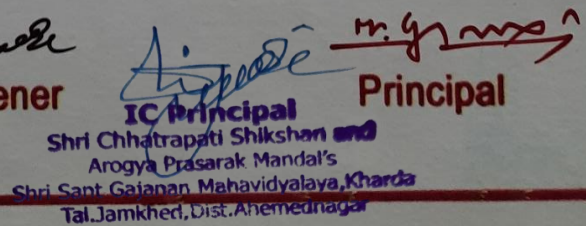 ener
Principal
IC Principal
Shri Chhatrapati Shikshan and
Arogya Prasarak Mandal's
Shri Sant Gajanan Mahavidyalaya,Kharda
Tal.Jamkhed,Dist.Ahemednagar